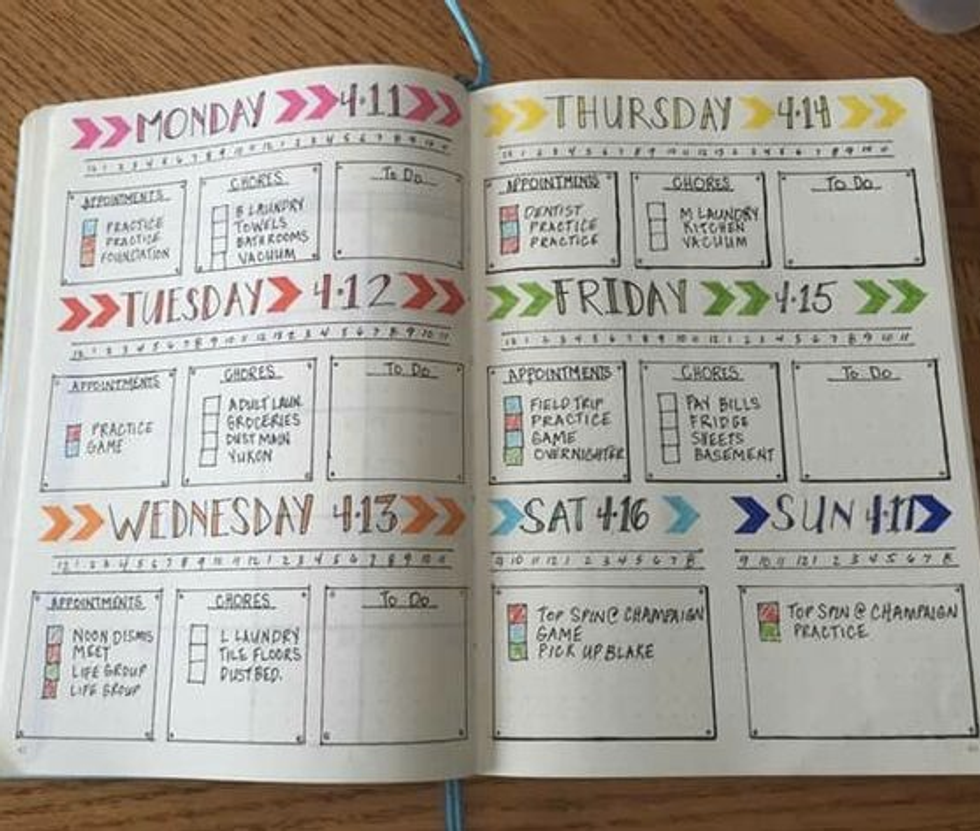 MONDAY 4.11
APPOINTMENTS
PRACTICE
PRACTICE
FOUNDATION
CHORES
B LAUNDRY
TOWELS
BATHROOMS
VACUUM
To Do
TUESDAY 4.12
APPOINTMENTS
PRACTICE
GAME
CHORES
ADULT LAUN.
GROCERIES
DUST MAIN
YUKON
To Do
WEDNESDAY 4.13
APPOINTMENTS
NOON DISMIS
MEET
LIFE GROUP
LIFE GROUP
CHORES
L LAUNDRY
TILE FLOORS
DUST BED.
To Do
THURSDAY 4.14
APPOINTMENTS
DENTIST
PRACTICE
PRACTICE
CHORES
M LAUNDRY
KITCHEN
VACUUM
To Do
FRIDAY 4.15
APPOINTMENTS
FIELD TRIP
PRACTICE
GAME
OVERNIGHTER
CHORES
PAY BILLS
FRIDGE
SHEETS
BASEMENT
To Do
SAT 4.16
9 10 11 12 1 2 3 4 5 6 7 8
TOP SPIN @ CHAMPAIGN
GAME
PICK UP BLAKE
SUN 4.17
9 10 11 12 1 2 3 4 5 6 7 8
TOP SPIN @ CHAMPAIGN
PRACTICE